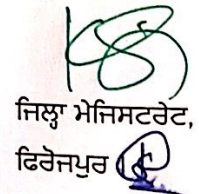 ਜਿਲ੍ਹਾ ਮੇਜਿਸਟਰੇਟ,
ਫਿਰੋਜਪੁਰ